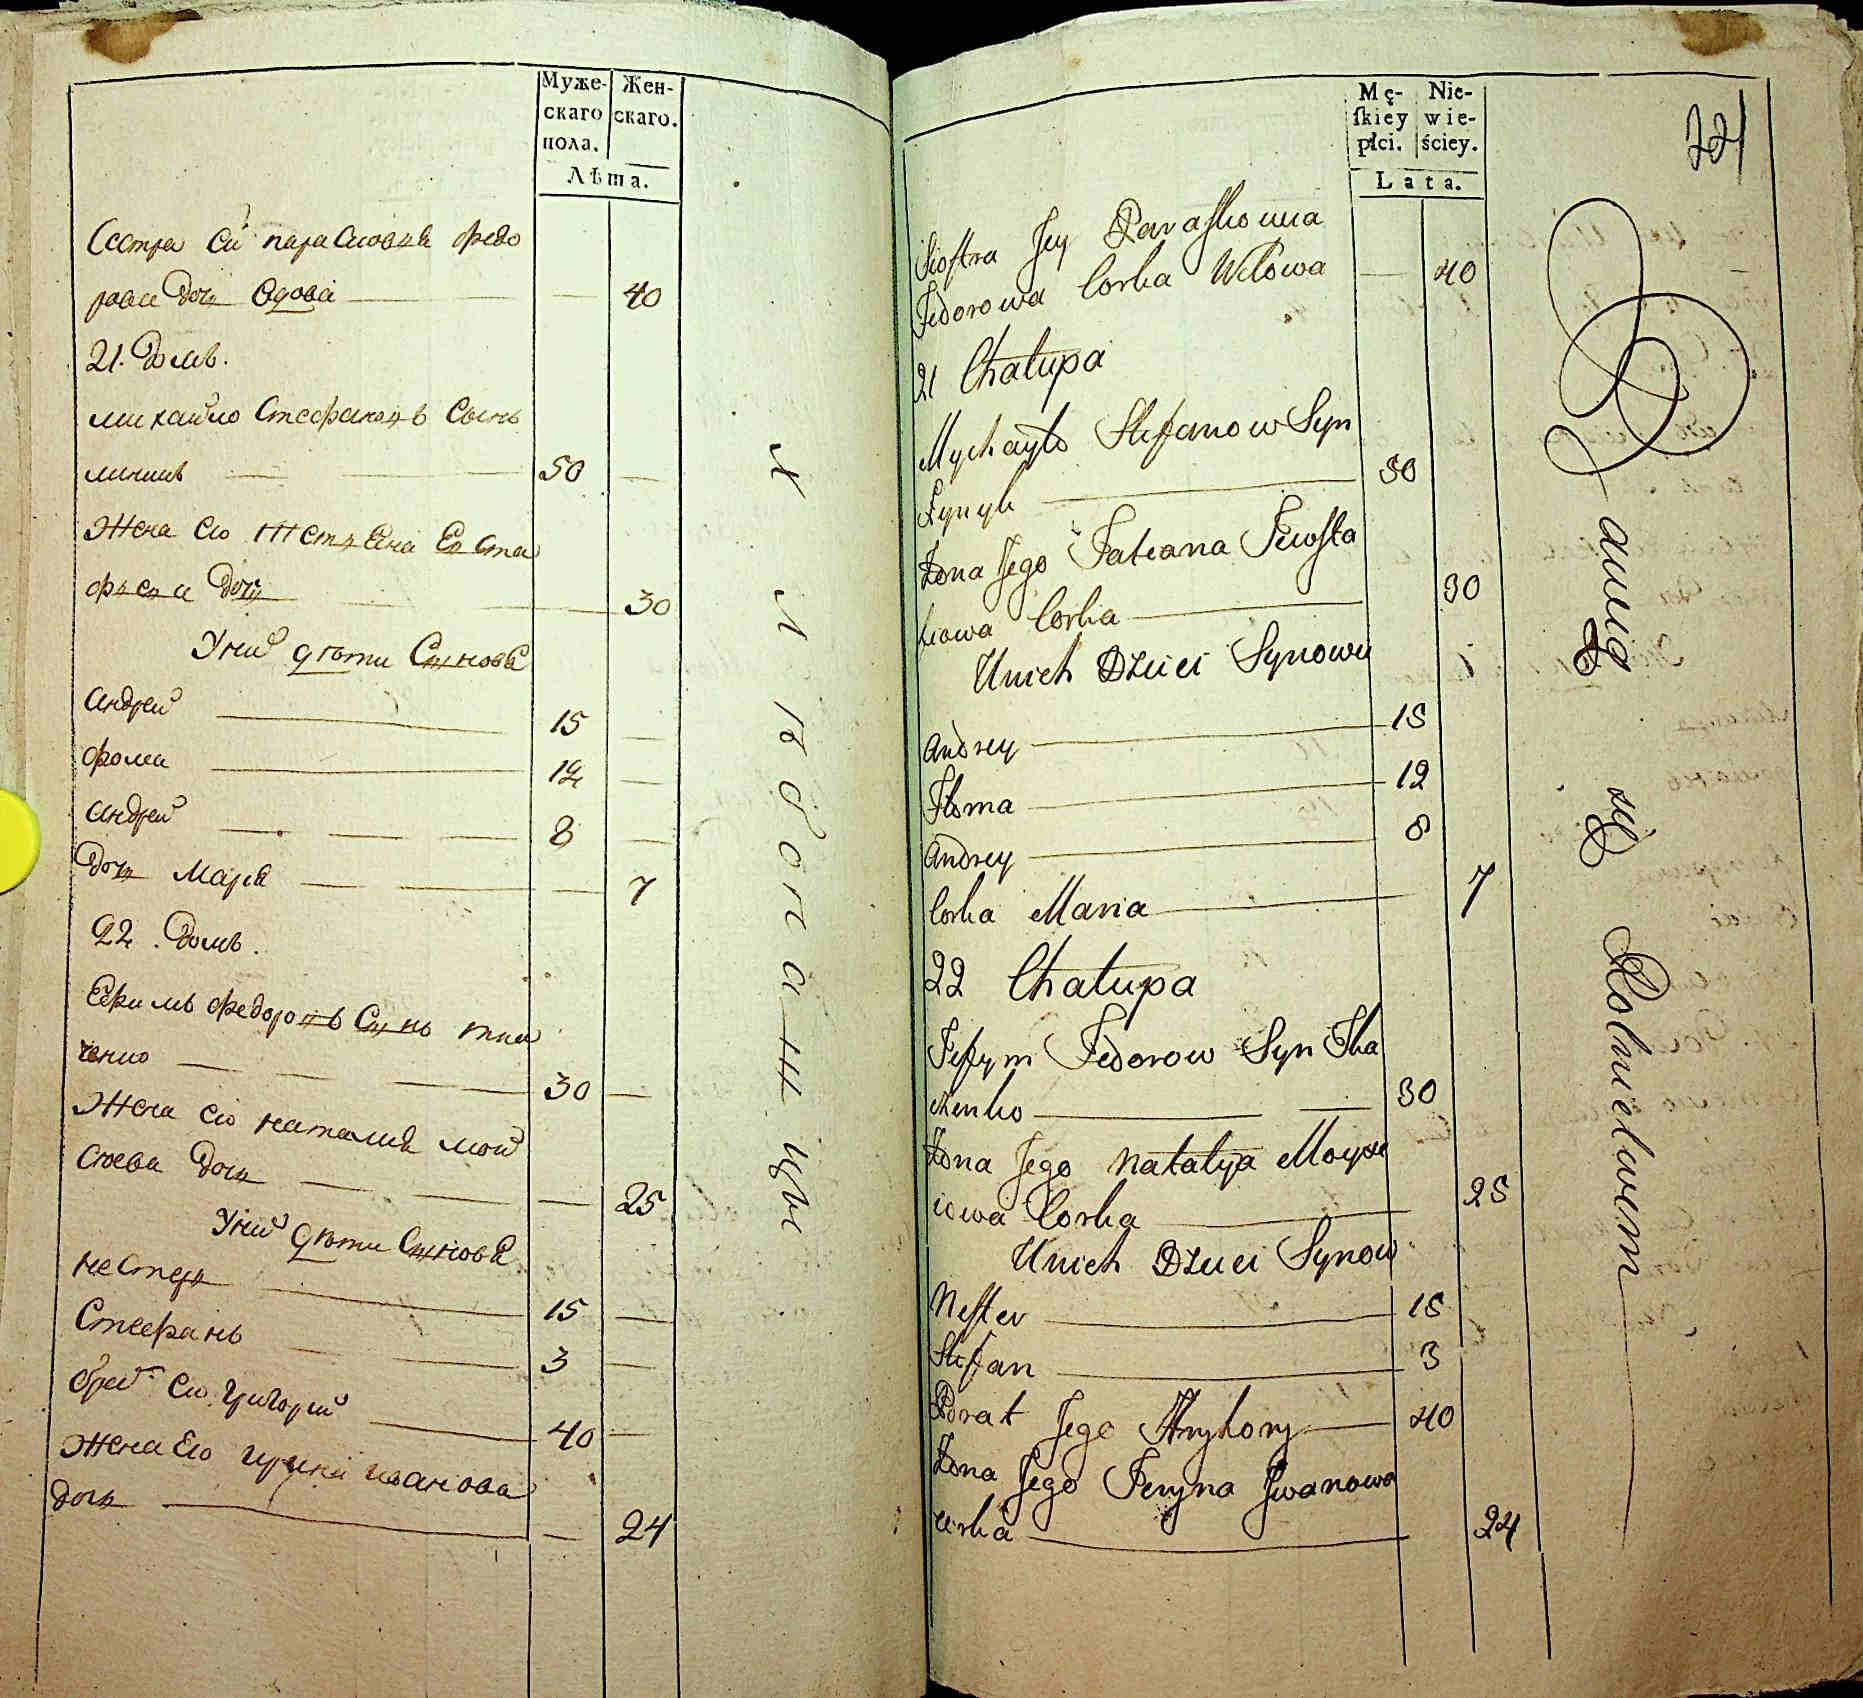 Муже-
скаго
пола.
Жен-
скаго.
Лѣта.
Сестра ей парасковия федо
рова дочь вдова 40
21. Домъ.
михайло Стефановъ Сынъ
линикъ 50
Жена его Евста
дочь 30
У них дѣти Сыновя
андрей 15
фома 12
андрей 8
дочь Мария 7
22. Домъ.
Ефимъ федоровъ Сынъ тка
ченко 30
Жена его наталия мой
сеева дочь 25
У них дѣти Сыновя
нестеръ 15
Стефанъ 3
брат его григорий 40
Жена Ево ирина иванова
дочь 24
хлѣбопашцы
Mę-
ſkiey
płci.
Nie-
wie-
ściey.
Lata.
221
Siostra Jey Paraskowia
Fedorowa Corka Wdowa 40
21 Chałupa
Mychayło Stefanow Syn
Łynyk 50
Zona Jego Tatiana Jewsta
fiowa Corka 30
Unich Dzieci Synowie
Andrey 15
Thoma 12
Andrey 8
Corka Maria 7
22 Chałupa
Jefym Fedorow Syn Tka
czenko 30
Zona Jego Natalya Moyse
iowa Corka 25
Unich Dzieci Synow
Nester 15
Stefan 3
Brat Jego Hryhory 40
Zona Jego Jeryna Jwanowa
Corka 24
Bawią się Rolnictwem